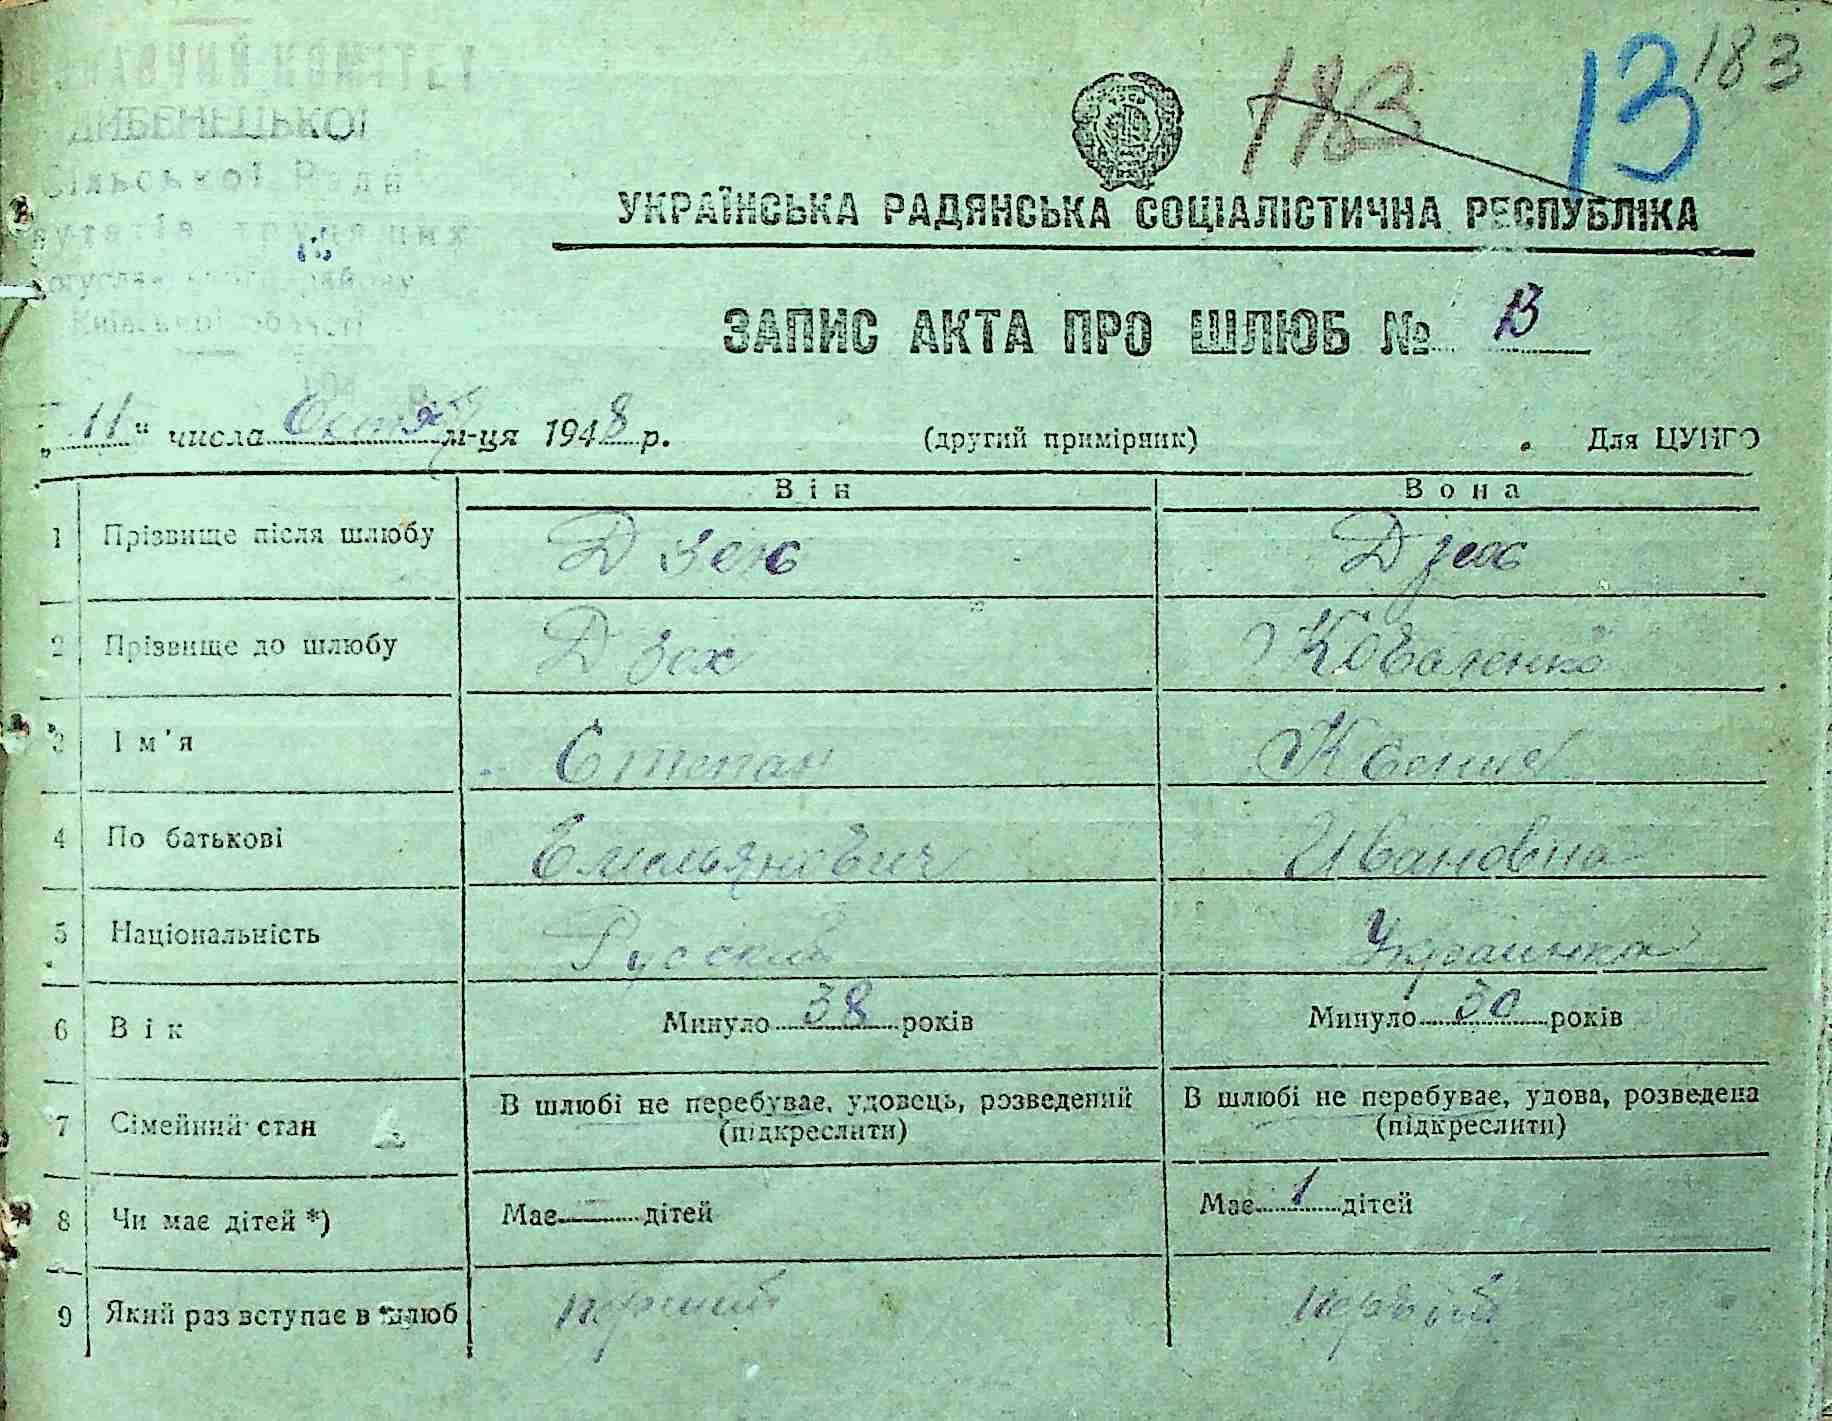 183
13
183
УКРАЇНСЬКА РАДЯНСЬКА СОЦІАЛІСТИЧНА РЕСПУБЛІКА
ЗАПИС АКТА ПРО ШЛЮБ № 13
„11“ числа м-ця 1948 р. (другий примірник) Для ЦУНГО
Він Вона
1 Прізвище після шлюбу Дзех Дзех
2 Прізвище до шлюбу Дзех Коваленко
3 Ім'я Степан Ксения
4 По батькові Емельянович Ивановна
5 Національність Русский Украинка
6 Вік Минуло 38 років Минуло 30 років
7 Сімейний стан В шлюбі не перебуває, удовець, розведений (підкреслити) В шлюбі не перебуває, удова, розведена (підкреслити)
8 Чи має дітей *) Має — дітей Має 1 дітей
9 Який раз вступає в шлюб первий